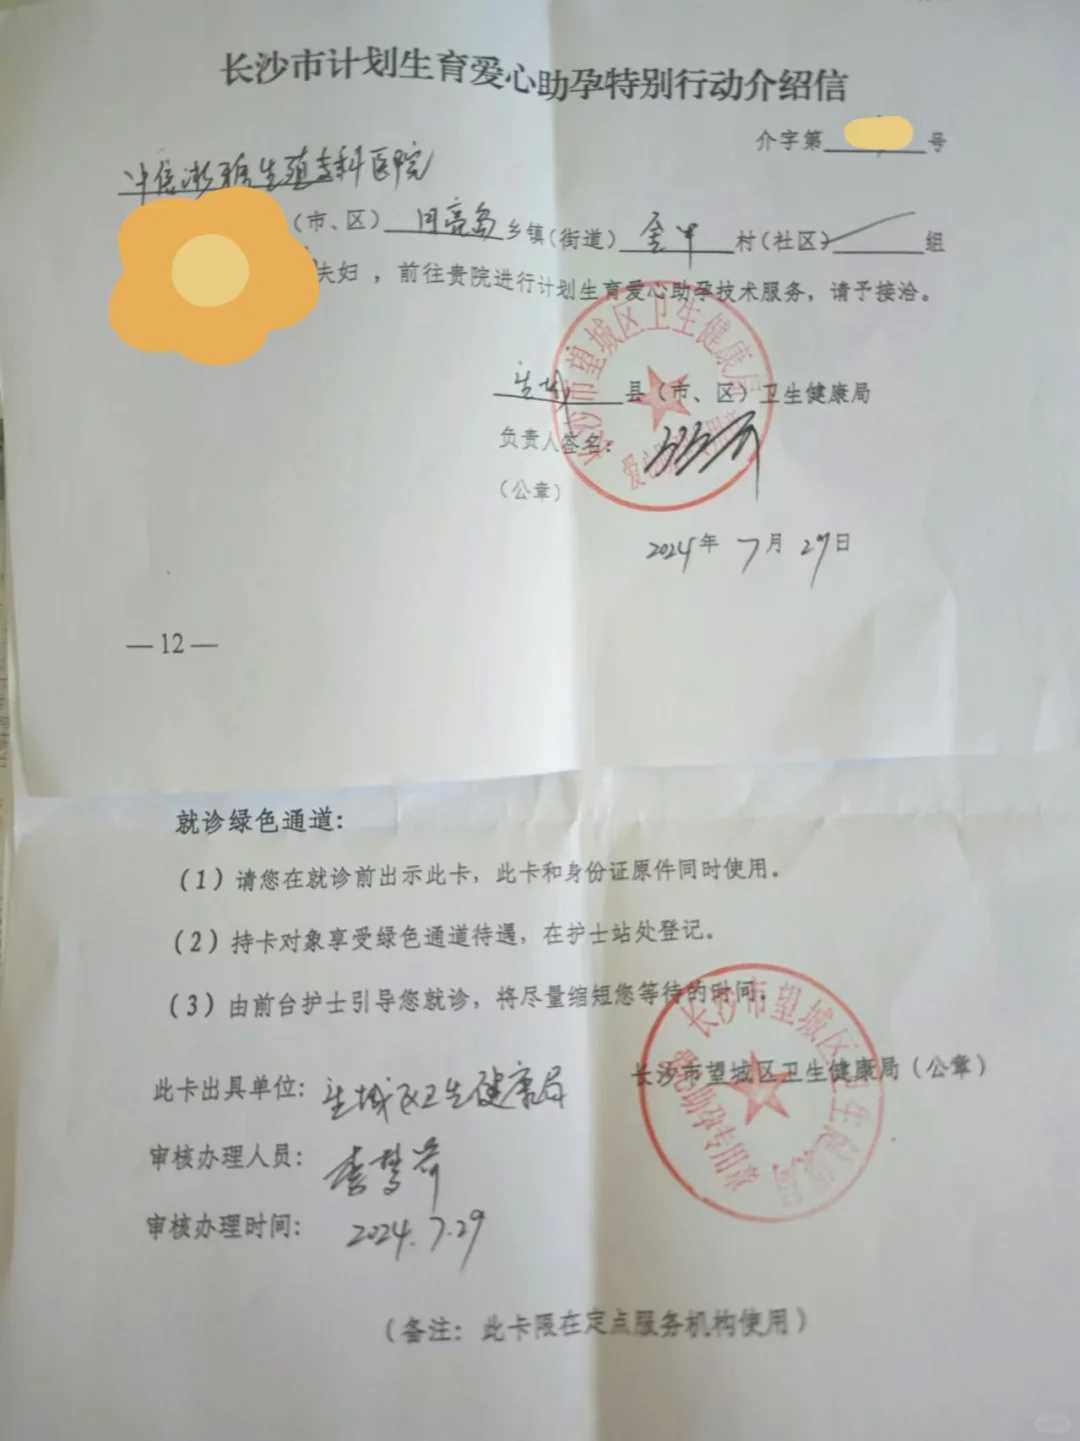 长沙市计划生育爱心助孕特别行动介绍信
介字第 号
中信湘雅生殖专科医院
（市、区）月亮岛乡镇（街道）金甲村（社区）组
夫妇，前往贵院进行计划生育爱心助孕技术服务，请予接洽。
望城县（市、区）卫生健康局
负责人签名：
（公章）
长沙市望城区卫生健康局
2024年7月29日
—12—
就诊绿色通道：
（1）请您在就诊前出示此卡，此卡和身份证原件同时使用。
（2）持卡对象享受绿色通道待遇，在护士站处登记。
（3）由前台护士引导您就诊，将尽量缩短您等待的时间。
长沙市望城区卫生健康局（公章）
长沙市望城区卫生健康局
爱心助孕专用章
此卡出具单位：望城区卫生健康局
审核办理人员：
审核办理时间：2024.7.29
（备注：此卡限在定点服务机构使用）